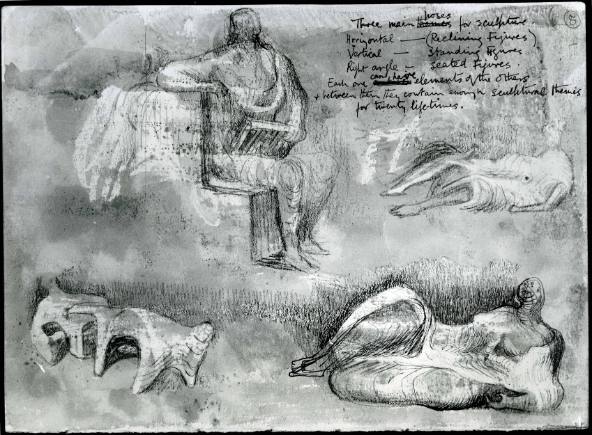 Three main poses for sculpture.
Horizontal — (Reclining Figures)
Vertical — Standing Figures
Right angle — Seated Figures.
Each one can have elements of the others
+ between them they contain enough sculptural themes
for twenty lifetimes.